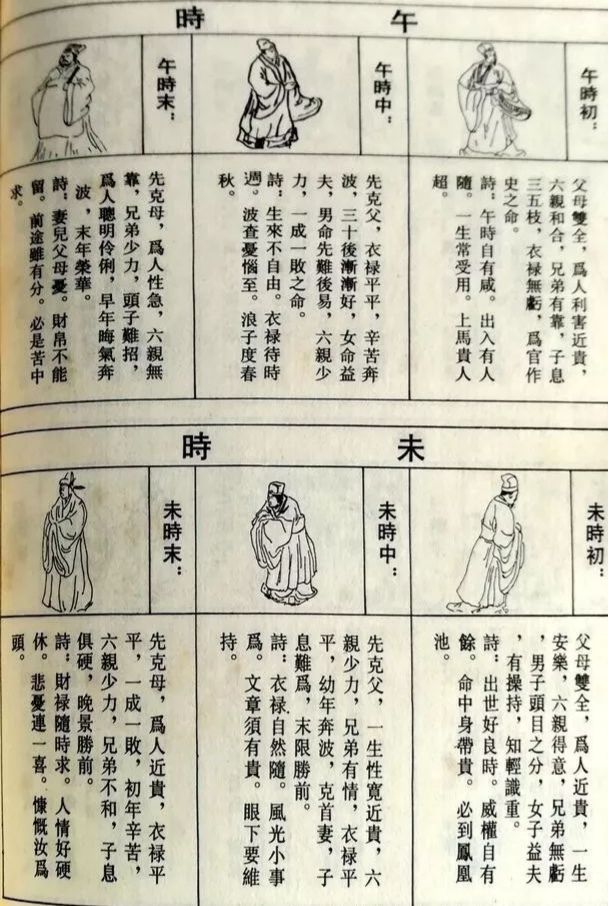 午時
午時初：
父母雙全，爲人利害近貴，
六親和合，兄弟有靠，子息
三五枝，衣禄無虧，爲官作
史之命。
詩：午時自有咸。出入有人
隨。一生常受用。上馬貴人
超。
午時中：
先克父，衣禄平平，辛苦奔
波，三十後漸漸好，女命益
夫，男命先難後易，六親少
力，一成一敗之命。
詩：生來不自由。衣禄待時
週。波查憂惱至。浪子度春
秋。
午時末：
先克母，爲人性急，六親無
靠，兄弟少力，頭子難招，
爲人聰明伶俐，早年晦氣奔
波，末年榮華。
詩：妻兒父母憂。財帛不能
留。前途雖有分。必是苦中
求。
未時
未時初：
父母雙全，爲人近貴，一生
安樂，六親得意，兄弟無虧
，男子頭目之分，女子益夫
，有操持，知輕識重。
詩：出世好良時。威權自有
餘。命中身帶貴。必到鳳凰
池。
未時中：
先克父，一生性寬近貴，六
親少力，兄弟有情，衣禄平
平，幼年奔波，克首妻，子
息難爲，末限勝前。
詩：衣禄自然隨。風光小事
爲。文章須有貴。眼下要維
持。
未時末：
先克母，爲人近貴，衣禄平
平，一成一敗，初年辛苦，
六親少力，兄弟不和，子息
俱硬，晚景勝前。
詩：財禄隨時求。人情好硬
休。悲憂連一喜。慷慨汝爲
頭。